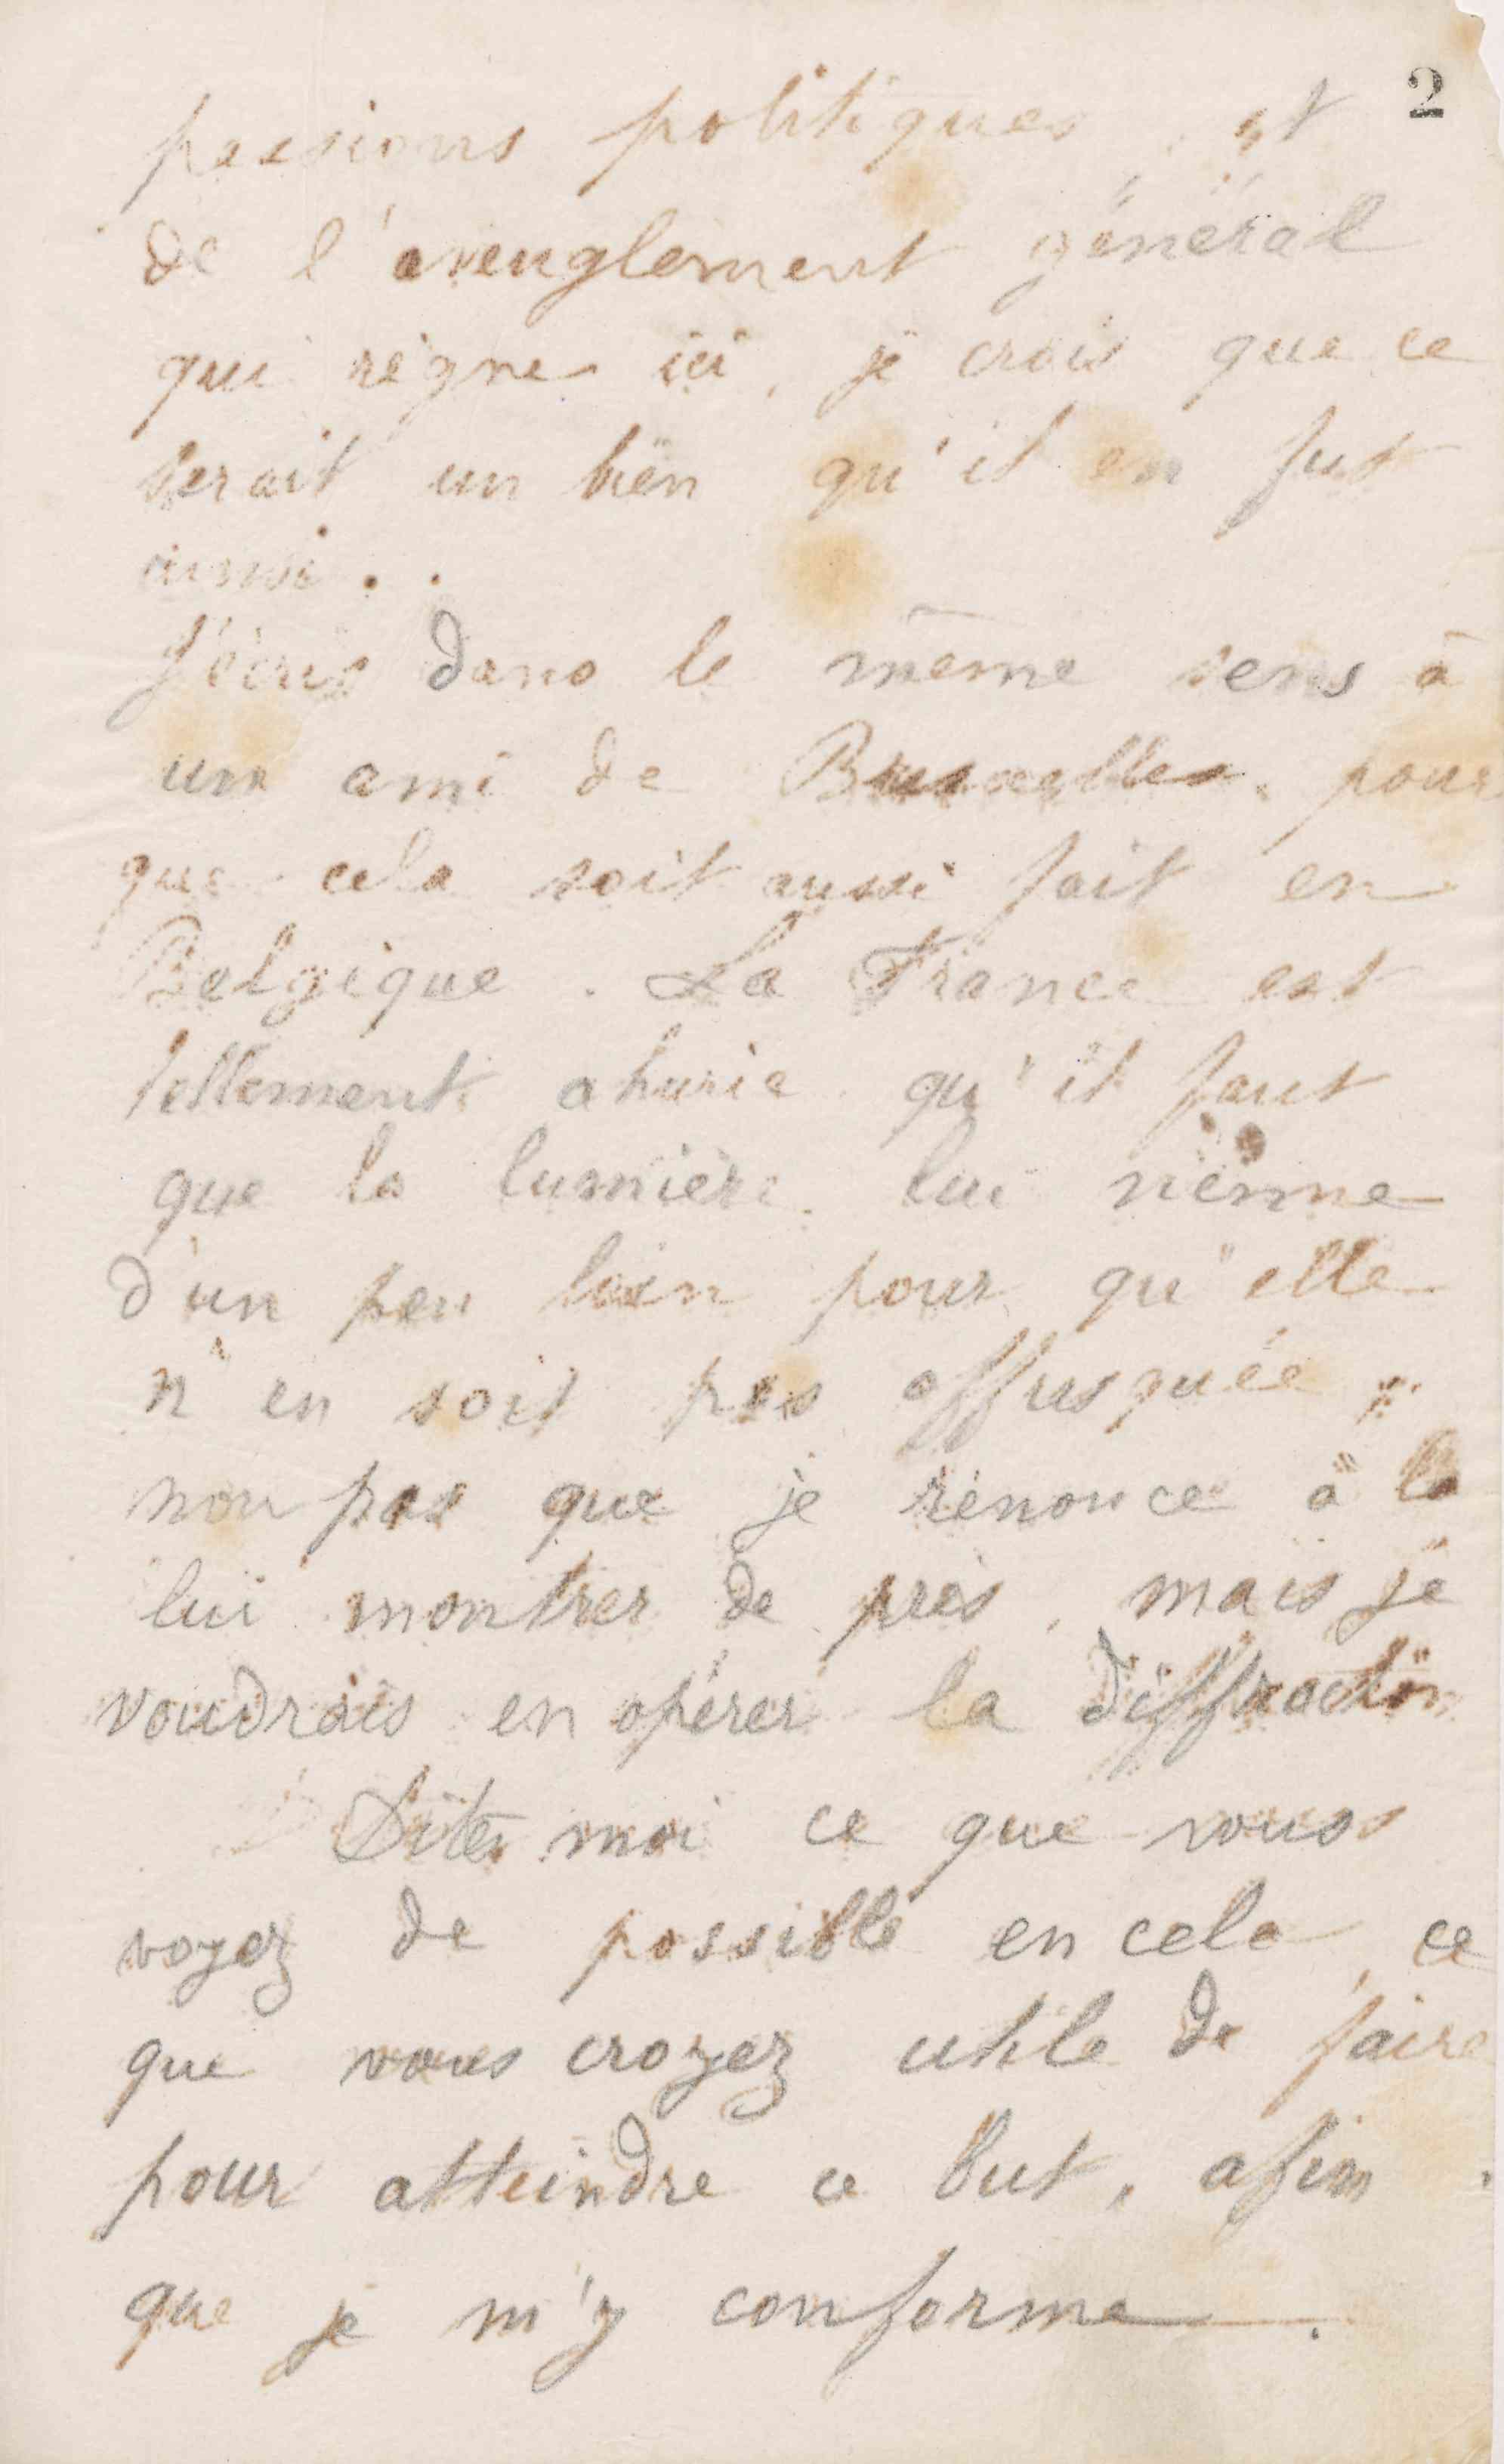 2
passions politiques et
de l'aveuglement général
qui règne ici, je crois que ce
serait un bien qu'il en fut
ainsi..
J'écris dans le même sens à
un ami de Bruxelles, pour
que cela soit aussi fait en
Belgique. La France est
tellement ahurie qu'il faut
que la lumière lui vienne
d'un peu loin pour qu'elle
n'en soit pas offusquée,
non pas que je renonce à la
lui montrer de près, mais je
voudrais en opérer la diffraction
Dites moi ce que vous
voyez de possible en cela, ce
que vous croyez utile de faire
pour atteindre ce but, afin
que je m'y conforme.